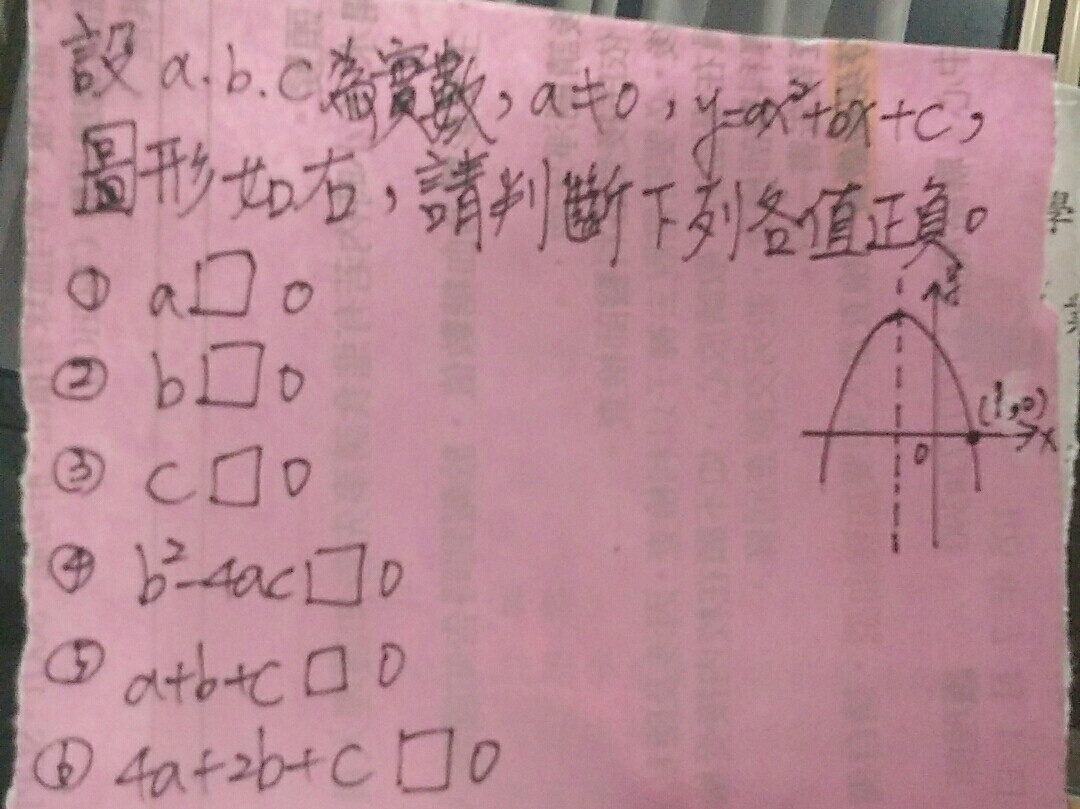 設a.b.c為實數,a≠0,y=ax²+bx+c,
圖形如右,請判斷下列各值正負。
① a□0
② b□0
③ c□0
④ b²-4ac□0
⑤ a+b+c□0
⑥ 4a+2b+c□0
(1,0)
x
0